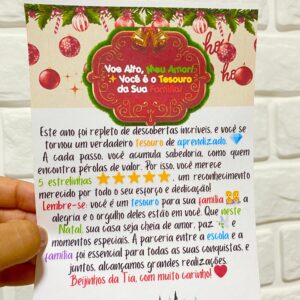 Voe Alto, Meu Amor!
Você é o Tesouro
da Sua Família!
ho!
ho!
Este ano foi repleto de descobertas incríveis, e você se
tornou um verdadeiro tesouro de aprendizado.
A cada passo, você acumula sabedoria, como quem
encontra pérolas de valor. Por isso, você merece
5 estrelinhas, um reconhecimento
merecido por todo o seu esforço e dedicação!
Lembre-se: você é um tesouro para sua família, a
alegria e o orgulho deles estão em você. Que neste
Natal, sua casa seja cheia de amor, paz e
momentos especiais. A parceria entre a escola e a
família foi essencial para todas as suas conquistas, e
juntos, alcançamos grandes realizações.
Beijinhos da Tia, com muito carinho!